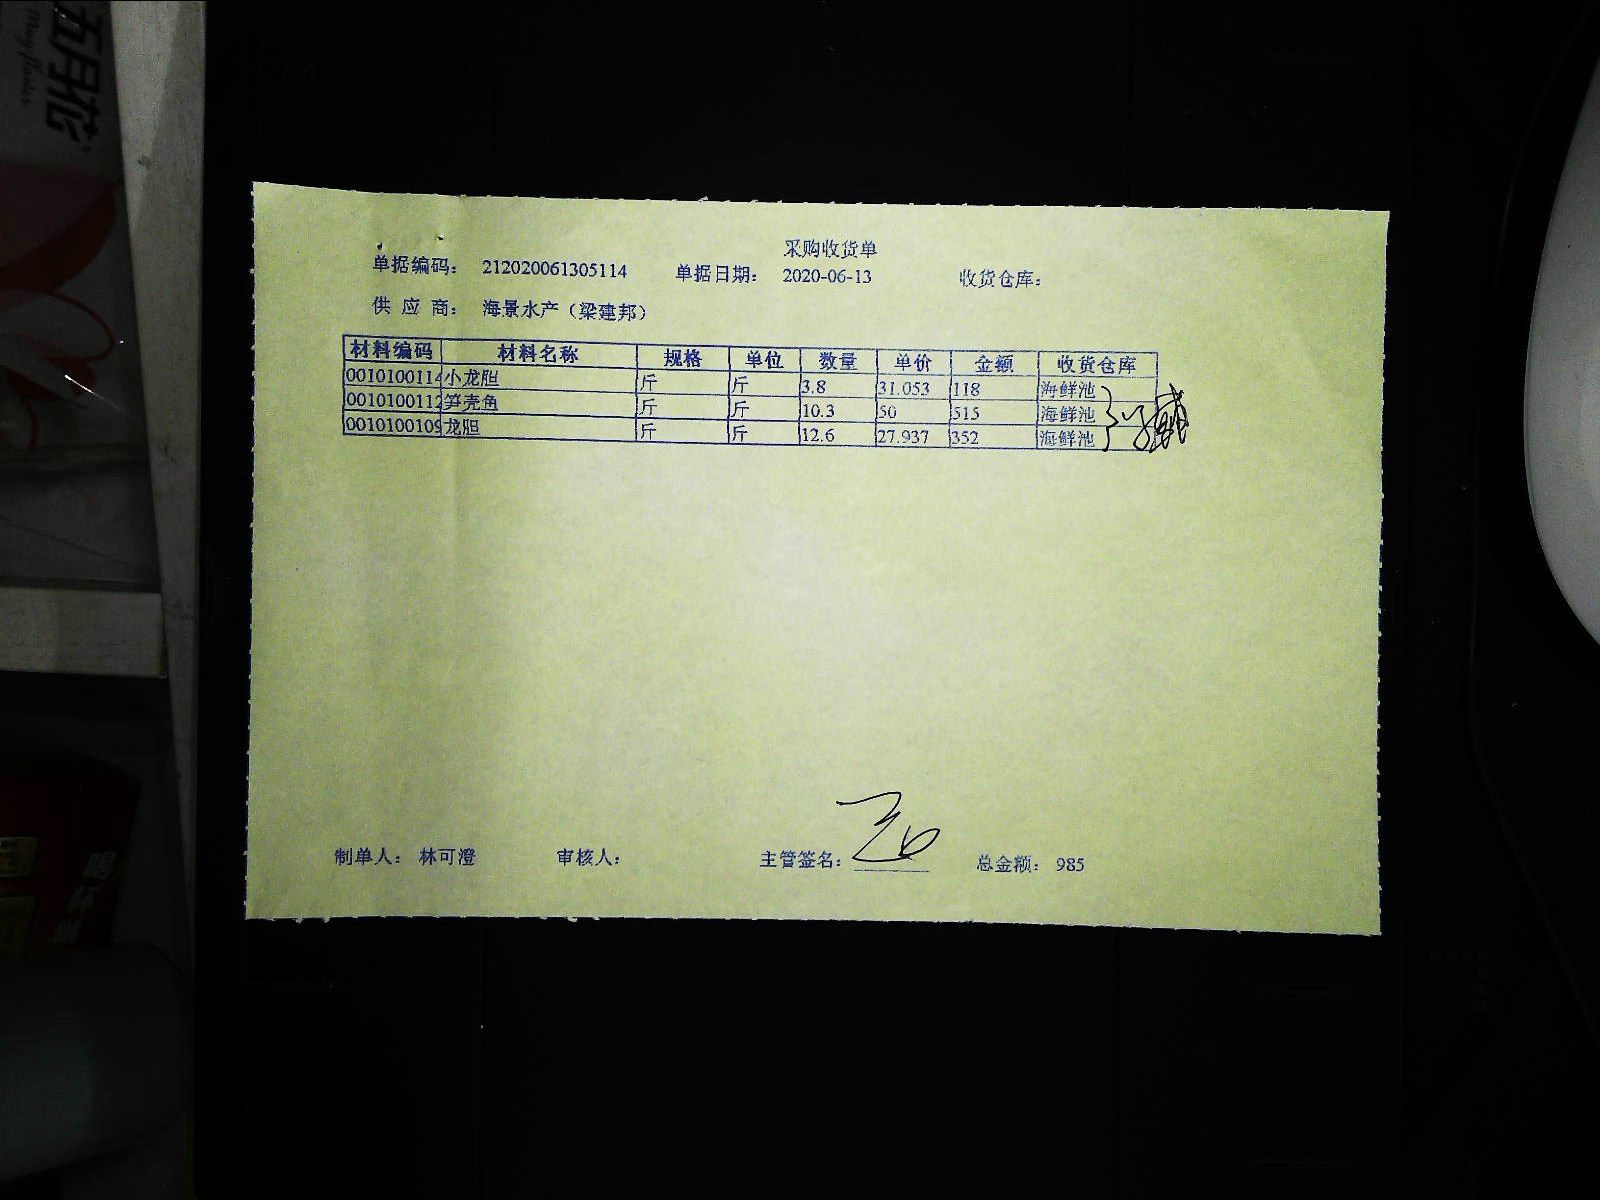 五月花
Mayflower
采购收货单
单据编码： 212020061305114 单据日期： 2020-06-13 收货仓库：
供 应 商： 海景水产（梁建邦）
材料编码 材料名称 规格 单位 数量 单价 金额 收货仓库
0010100114 小龙胆 斤 斤 3.8 31.053 118 海鲜池
0010100112 笋壳鱼 斤 斤 10.3 50 515 海鲜池
0010100109 龙胆 斤 斤 12.6 27.937 352 海鲜池
制单人： 林可澄 审核人： 主管签名： 总金额： 985
喝杯